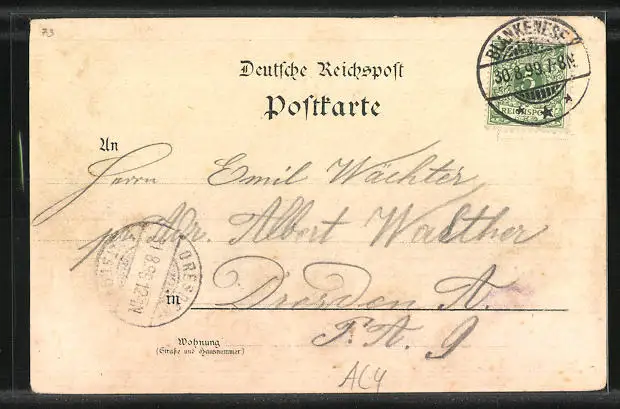 73
BLANKENESE
30.8.99.7-8N.
5
REICHSPOST
Deutsche Reichspost
Postkarte
An
Herrn Emil Wächter
Adr. Albert Walther
in Dresden A.
P. A. 9
Wohnung
(Straße und Hausnummer)
DRESDEN
ACY